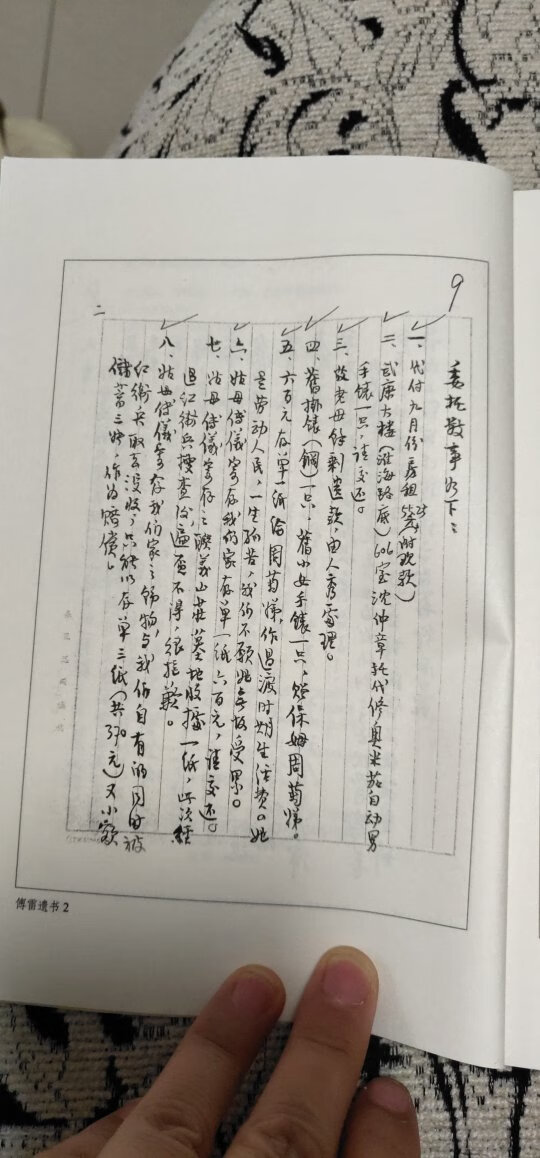 9
委托数事如下：
一、代付九月份房租55.29元（附现款）
二、武康大楼（淮海路底）606室沈仲章托代修奥米茄自动男
手錶一只，请交还。
三、故老母餘剩遗款，由人秀處理。
四、舊掛錶（鋼）一只，舊小女手錶一只，赠保姆周菊娣。
五、六百元存单一纸给周菊娣，作过渡时期生活费。她
是劳动人民，一生孤苦，我们不愿她无故受累。
六、姑母傅儀寄存我们家存单一纸六百元，请交还。
七、姑母傅儀寄存之联義山莊墓地收據一纸，此次经
过红衛兵搜查後遍覓不得，很抱歉。
八、姑母傅儀寄存我们家之飾物，与我们自有的同时被
红衛兵取去没收，只能以存单三纸（共370元）又小额
储蓄三张，作为赔偿。
二
傅雷遗书 2